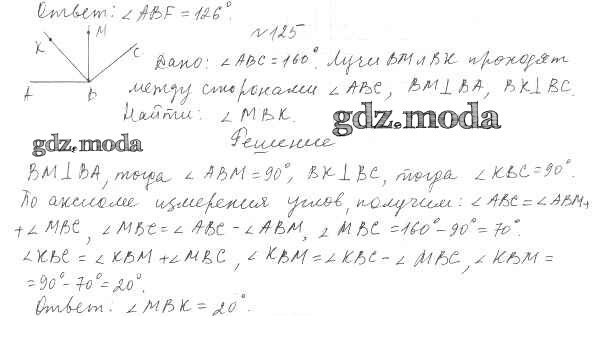 Ответ: ∠ABF = 126°.
N 125
K M C
A B
Дано: ∠ABC = 160°. Лучи BM и BK проходят
между сторонами ∠ABC, BM⊥BA, BK⊥BC.
Найти: ∠MBK.
gdz.moda
gdz.moda
Решение
BM⊥BA, тогда ∠ABM = 90°, BK⊥BC, тогда ∠KBC = 90°.
По аксиоме измерения углов, получим: ∠ABC = ∠ABM +
+ ∠MBC, ∠MBC = ∠ABC - ∠ABM, ∠MBC = 160° - 90° = 70°.
∠KBC = ∠KBM + ∠MBC, ∠KBM = ∠KBC - ∠MBC, ∠KBM =
= 90° - 70° = 20°.
Ответ: ∠MBK = 20°.